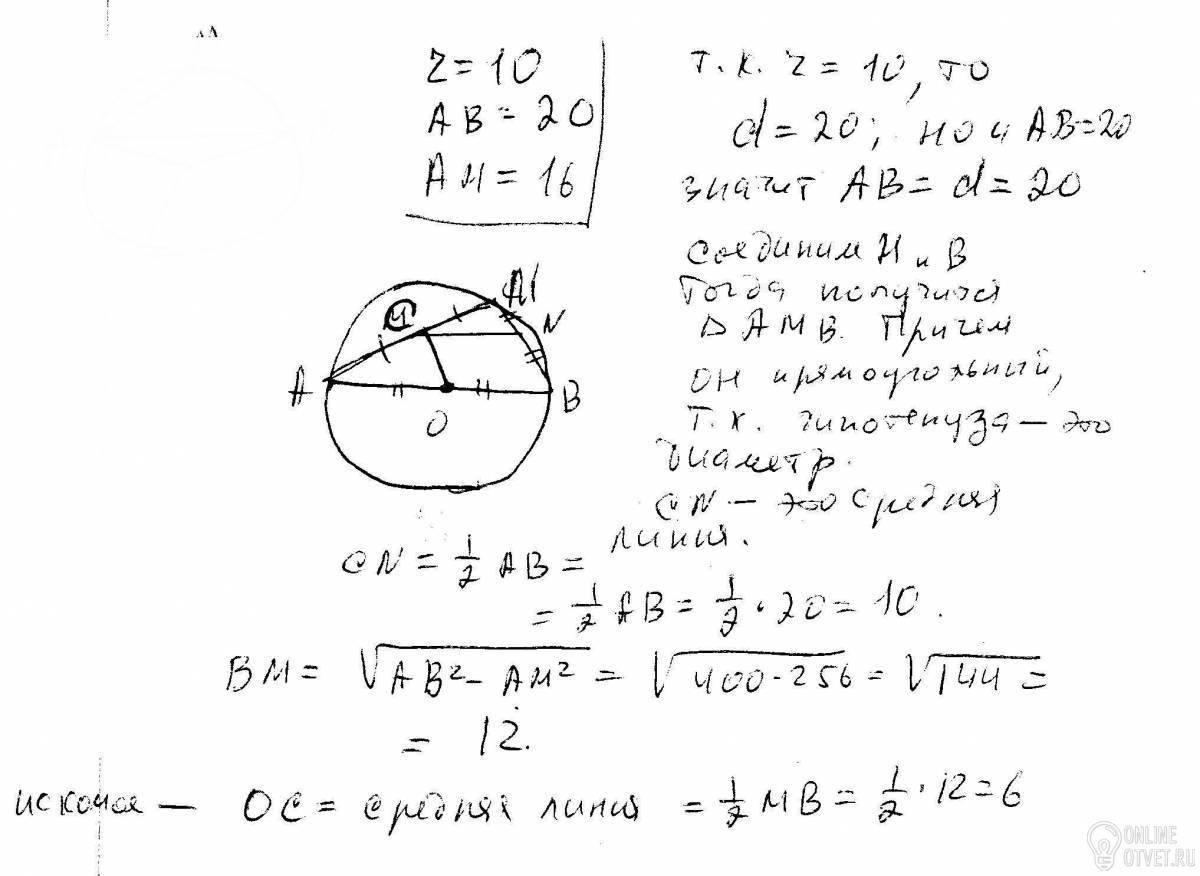 r = 10
AB = 20
AM = 16
т.к. r = 10, то
d = 20; но и AB = 20
значит AB = d = 20
Соединим M и B
Тогда получился
△ AMB. Причем
он прямоугольный,
т.к. гипотенуза — это
диаметр.
CN — это средняя
линия.
M
N
A
B
O
CN = 1/2 AB =
= 1/2 AB = 1/2 · 20 = 10.
BM = √(AB² - AM²) = √(400 - 256) = √144 =
= 12.
искомое — OC = средняя линия = 1/2 MB = 1/2 · 12 = 6
ONLINE
OTVET.RU